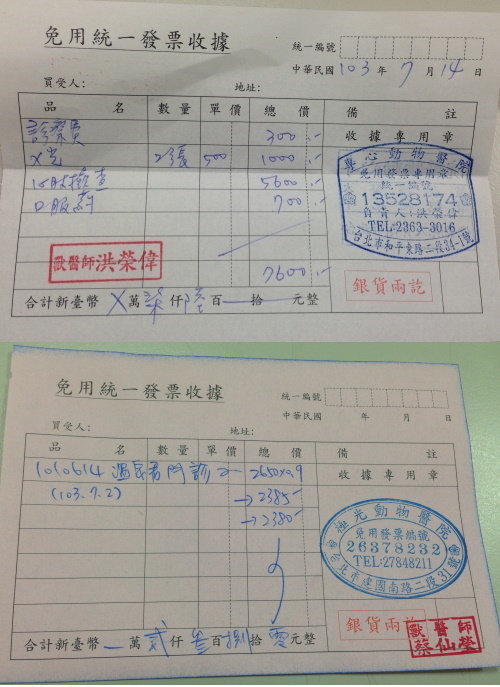 免用統一發票收據
統一編號
中華民國 103 年 7 月 14 日
買受人： 地址：
品名 數量 單價 總價 備註
診察費 300.-
收據專用章
X光 2張 500 1000.-
心臟檢查 5600.-
口服藥 700.-
7600.-
專心動物醫院
免用發票專用章
統一編號
13528174
負責人:洪榮偉
TEL:2363-3016
台北市和平東路二段34-1號
獸醫師 洪榮偉
銀貨兩訖
合計新臺幣 X 萬 柒 仟 陸 百 拾 元整
免用統一發票收據
統一編號
中華民國 年 月 日
買受人： 地址：
品名 數量 單價 總價 備註
1010614 門診 2650x0.9
收據專用章
(103.7.2) →2385-
→2380-
極光動物醫院
免用發票編號
26378232
TEL:27848211
台北市建國南路二段31號
銀貨兩訖
獸醫師
蔡仙瑩
合計新臺幣 萬 貳 仟 參 百 捌 拾 零 元整